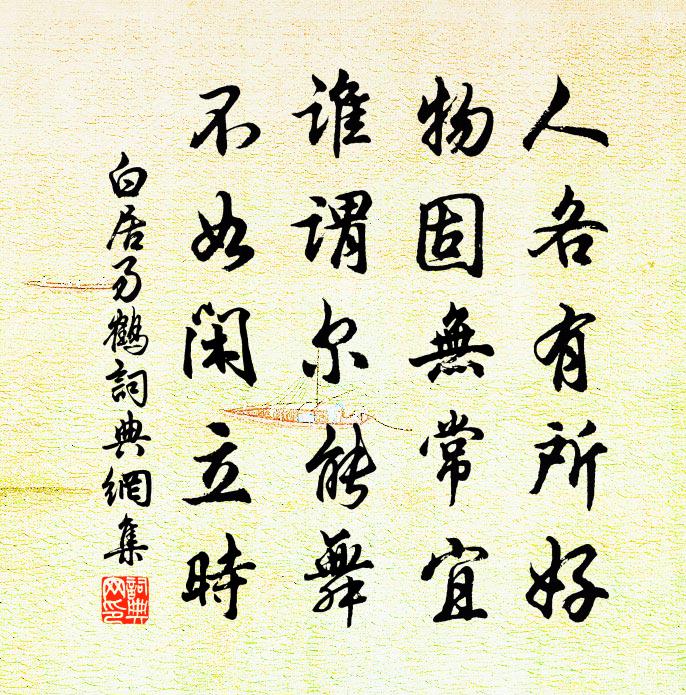 人各有所好
物固無常宜
誰謂尔能舞
不如閑立時
白居易鶴詞典網集
詞典網印